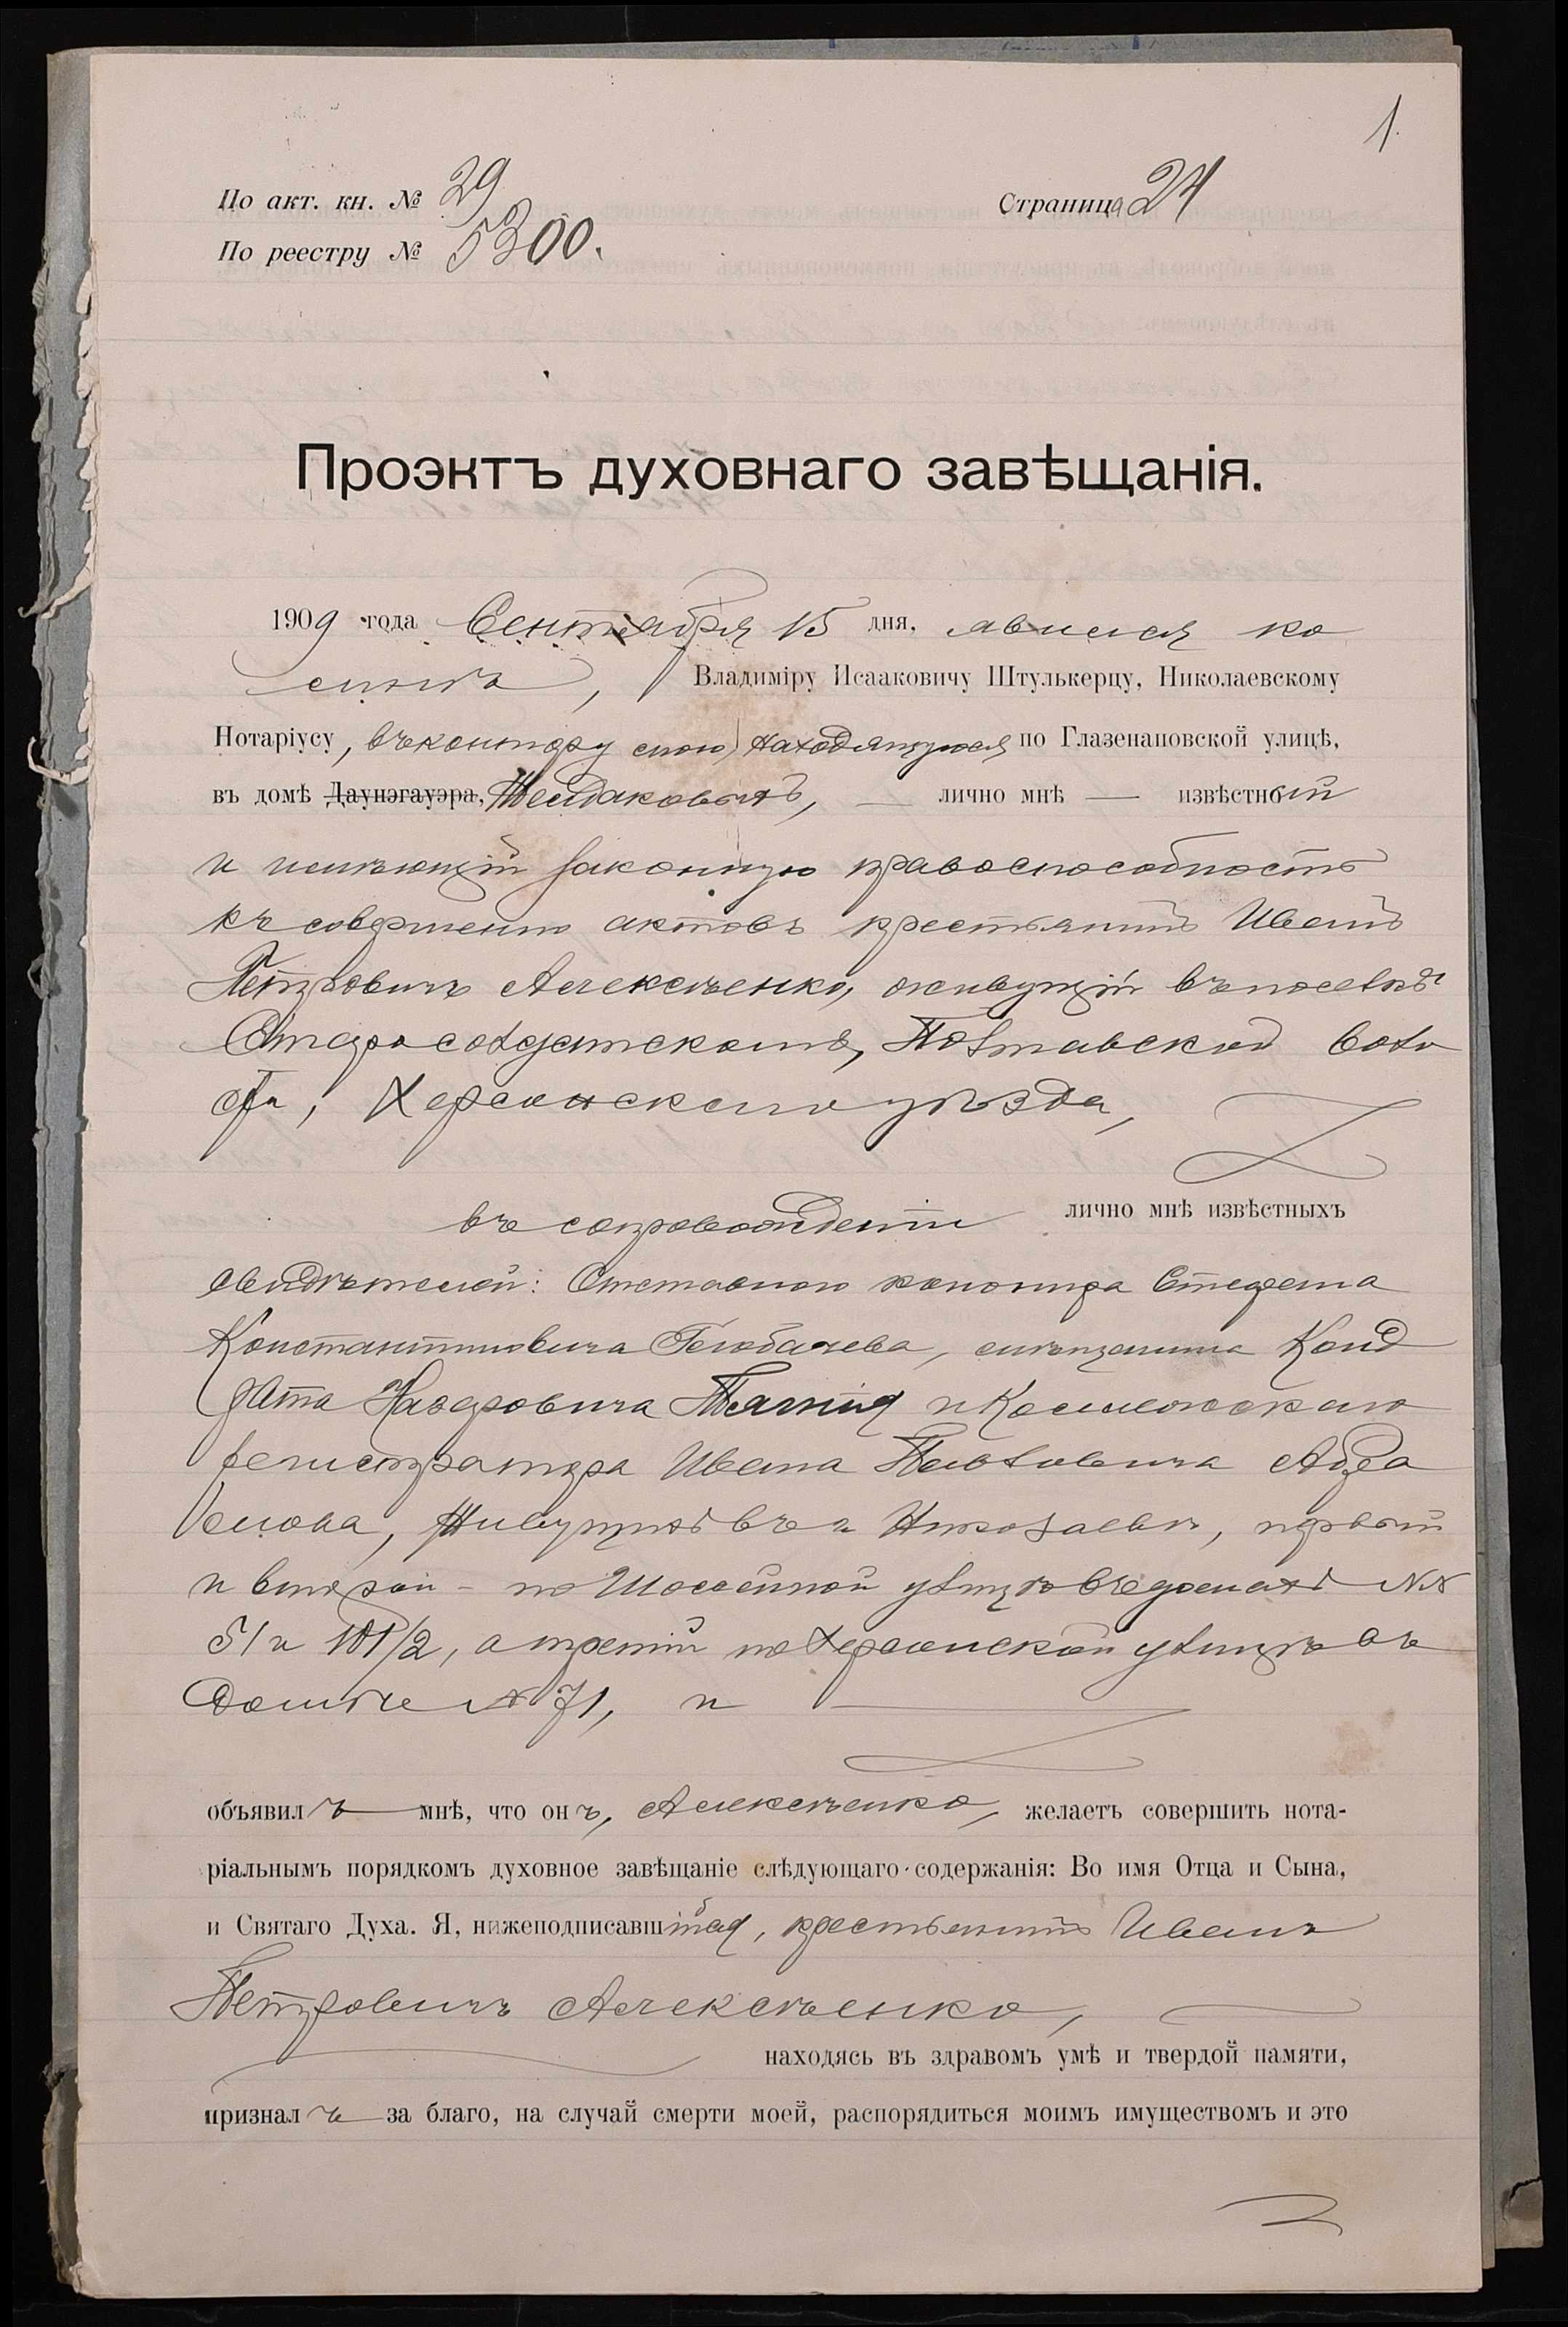 1
По акт. кн. № 29
Страница 24
По реестру № 5300.
Проэктъ духовнаго завѣщанія.
1909 года Сентября 15 дня, явился ко
мнѣ, Владиміру Исааковичу Штулькерцу, Николаевскому
Нотаріусу, въ контору мою, находящуюся по Глазенаповской улицѣ,
въ домѣ Даунэгауэра, лично мнѣ — извѣстный
и имѣющій законную правоспособность
къ совершенію актовъ крестьянинъ Иванъ
Петровичъ Алексѣенко, живущій въ поселкѣ
Старосолдатскомъ, Полтавской воло
сти, Херсонскаго уѣзда,
въ сопровожденіи лично мнѣ извѣстныхъ
свидѣтелей: Отставного канонира Стефана
Константиновича Голобачева, мѣщанина Конд
рата Назаровича и Коллежскаго
регистратора Ивана Павловича Абра
мова, живущихъ въ г. Николаевѣ, первый
и второй – по Шоссейной улицѣ въ домахъ №№
51 и 101/2, а третій по Херсонской улицѣ въ
домѣ № 71, и
объявилъ мнѣ, что онъ, Алексѣенко, желаетъ совершить нота-
ріальнымъ порядкомъ духовное завѣщаніе слѣдующаго содержанія: Во имя Отца и Сына,
и Святаго Духа. Я, нижеподписавшійся, крестьянинъ Иванъ
Петровичъ Алексѣенко,
находясь въ здравомъ умѣ и твердой памяти,
призналъ за благо, на случай смерти моей, распорядиться моимъ имуществомъ и это